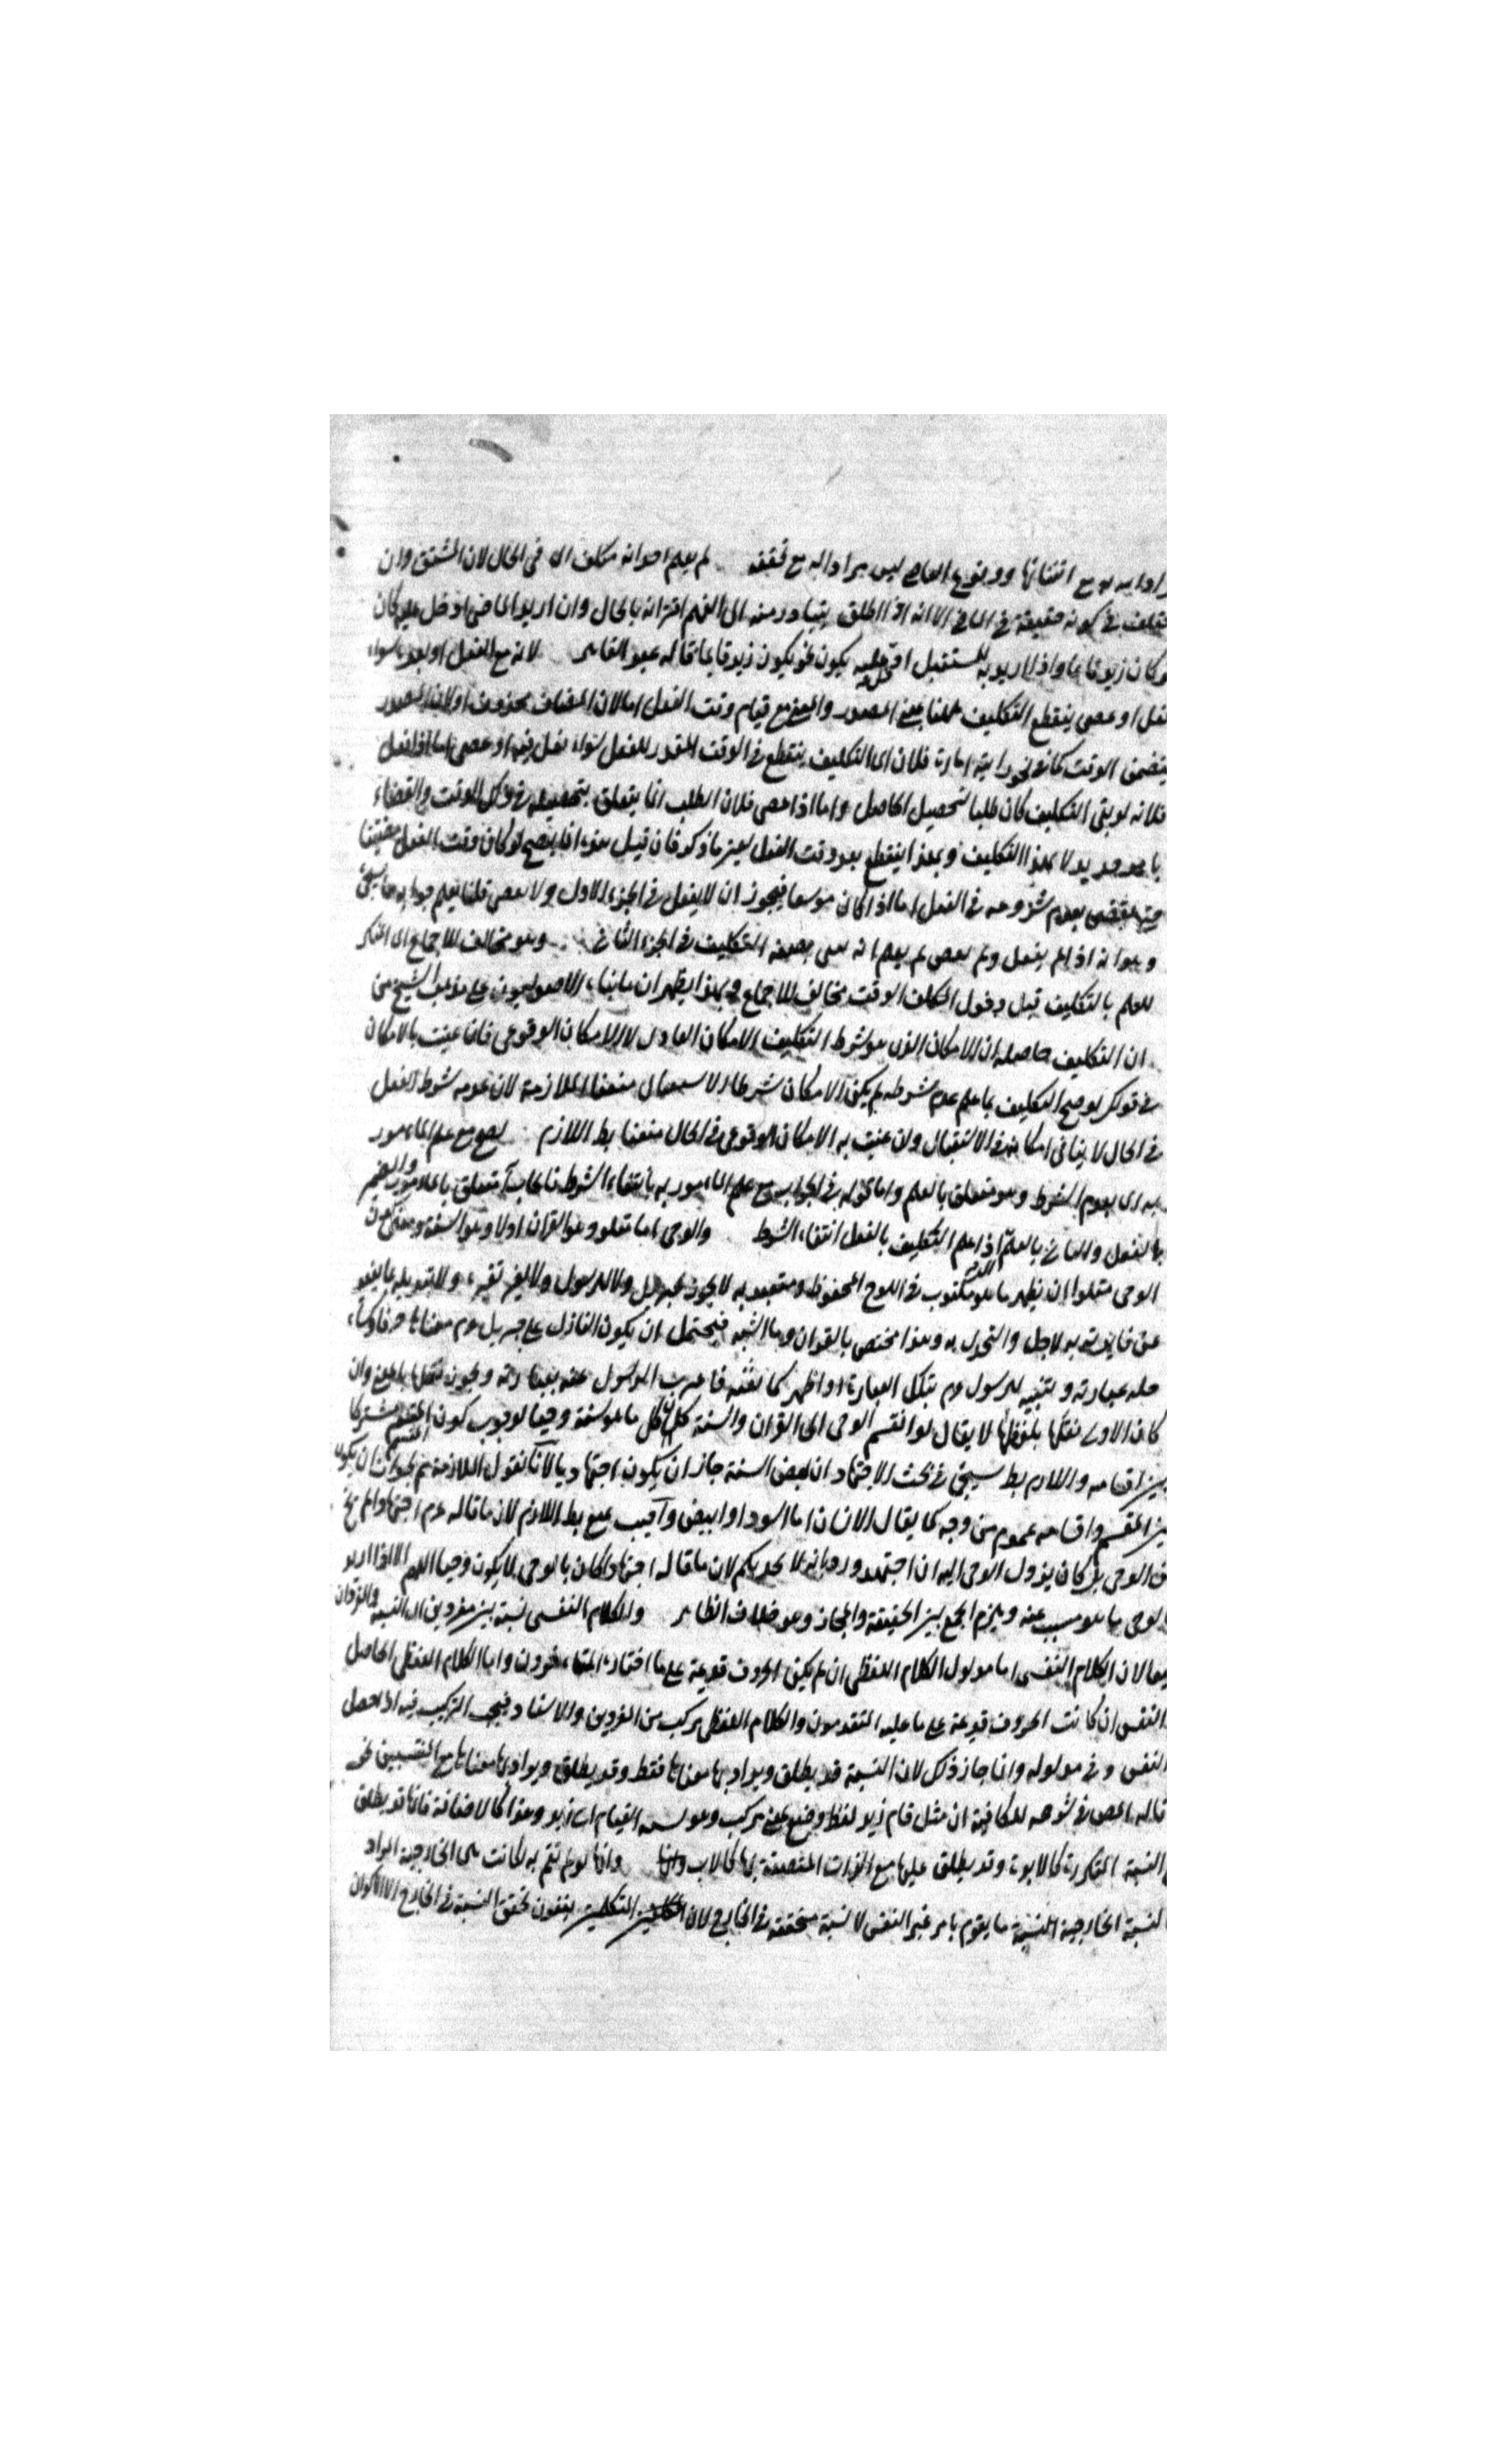 انتفائها ووقوع العاصي ليس بمراد اله مع تحققه لم يعلم احد انه مكلف اى فى الحال لان المشتق وان
فى كونه حقيقة فى الماضى الا انه اذا اطلق يتبادر منه الى الفهم اقترانه بالحال وان اريد الماضى ادخل عليه كان
كان زيد قائما واذا اريد به المستقبل ادخل عليه يكون نحو يكون زيد قائما قاله عبد القاهر لانه مع الفعل او بعده سواء
فعل او عصى ينقطع التكليف والمعنى مع قيام وقت الفعل اما لان المضاف محذوف او لان المصدر
يتضمن الوقت كما فى نحو امارة فلان اى التكليف ينقطع فى الوقت المقدر للفعل سواء فعل فيه او عصى اما اذا فعل
فلانه لو بقى التكليف كان طلبا لتحصيل الحاصل واما اذا عصى فلان الطلب انما يتعلق بتحصيله فى ذلك الوقت والقضاء
بامر جديد لا بهذا التكليف وبهذا ينقطع بعد وقت الفعل بعين ما ذكر فان قيل هذا انما يصح لو كان وقت الفعل مضيقا
بعدم شروعه فى الفعل اما اذا كان موسعا فيجوز ان لا يفعل فى الجزء الاول ولا يعصى قلنا يعلم جوابه مما سيجئ
وهو انه اذا لم يفعل ولم يعص لم يعلم انه التكليف فى الجزء الثانى وهو مخالف للاجماع اى المنكر
للعلم بالتكليف قبل دخول الوقت مخالف للاجماع وبهذا يظهر ان الاصوليون على مذهب الشيخ من
ان التكليف حاصله ان الامكان الذى هو شرط التكليف الامكان العادى لا الامكان الوقوعى فان عنيت بالامكان
فى قولكم لو صح التكليف بما علم عدم شرطه لم يكن الامكان شرطا منعنا الملازمة لان عدم شرط الفعل
فى الحال لا ينافى امكانه فى الاستقبال وان عنيت به الامكان الوقوعى فى الحال منعنا بط اللازم يصح مع علم المأمور
به اى بعدم الشرط وهو متعلق بالعلم واما قوله فى الجواب مع علم المأمور به بانتفاء الشرط متعلق بالمأمور والضمير
بالفعل والثانى بالعلم اذ اعلم التكليف بالفعل انتفاء الشرط والوحى اما متلو وهو القران اولا وهو السنة ومعنى كون
الوحى متلوا ان يظهر ما هو مكتوب فى اللوح المحفوظ ومتعبد به لا يجوز لجبريل ولا للرسول ولا لغير تغيره ولا تبديله بما يفيد
عن فائدته لاجل والتحدى به وهذا مختص بالقران وما السنة فيحتمل ان يكون النازل على جبريل عم معناها صرفا وكساه
حلة عبارته وبينه للرسول عم بتلك العبارة او اظهر كما نفثه فاعرب الرسول عنه بعبارته ويجوز نقلها بالمعنى وان
كان الاولى نقلها بلفظها لا يقال لو انقسم الوحى الى القران والسنة كان كل ما هو سنة وحيا لوجوب كون المقسم مشتركا
بين اقسامه واللازم بط سيجئ فى بحث الاجتهاد ان بعض السنة جاز ان يكون اجتهاديا لانا نقول الملازمة لجواز ان يكون
بين المقسم واقسامه عموم من وجه كما يقال الانسان اما اسود او ابيض واجيب بمنع بط اللازم لان ما قاله عم اجتهادا لم يخ
الوحى بل كان ينزل الوحى اليه ان اجتهد ورد بانه لا يجديكم لان ما قاله اجتهادا كان بالوحى لا يكون وحيا اللهم الا اذا اريد
بالوحى ما هو مسبب عنه ويلزم الجمع بين الحقيقة والمجاز وهو خلاف الظاهر والكلام النفسى نسبة بين مفردين اى النسبة والمفردان
معا لان الكلام النفسى اما مدلول الكلام اللفظى ان لم يكن الحروف قديمة على ما اختاره المتأخرون واما الكلام اللفظى الحاصل
النفس ان كانت الحروف قديمة على ما عليه المتقدمون والكلام اللفظى مركب من المفردين والاسناد فيجب التركيب فيه اذا حصل
النفس وفى مدلوله وانما جاز ذلك لان النسبة قد يطلق ويراد بها معناها فقط وقد يطلق ويراد بها معناها مع المنتسبين نحو
قاله المص فى شرحه للكافية ان مثل قام زيد لفظ وضع لمعنى مركب وهو نسبة القيام الى زيد وهذا كالاضافة فانها قد يطلق
النسبة المتكررة كالابوة وقد يطلق عليها مع الذات المتصفة بها كالاب وانها لو لم تقم به لكانت هى الخارجية المراد
النسبة الخارجية النسبة ما يقوم بامر غير النفس لا نسبة متحققة فى الخارج لان المتكلمين ينفون تحقق النسبة فى الخارج الا الاكوان